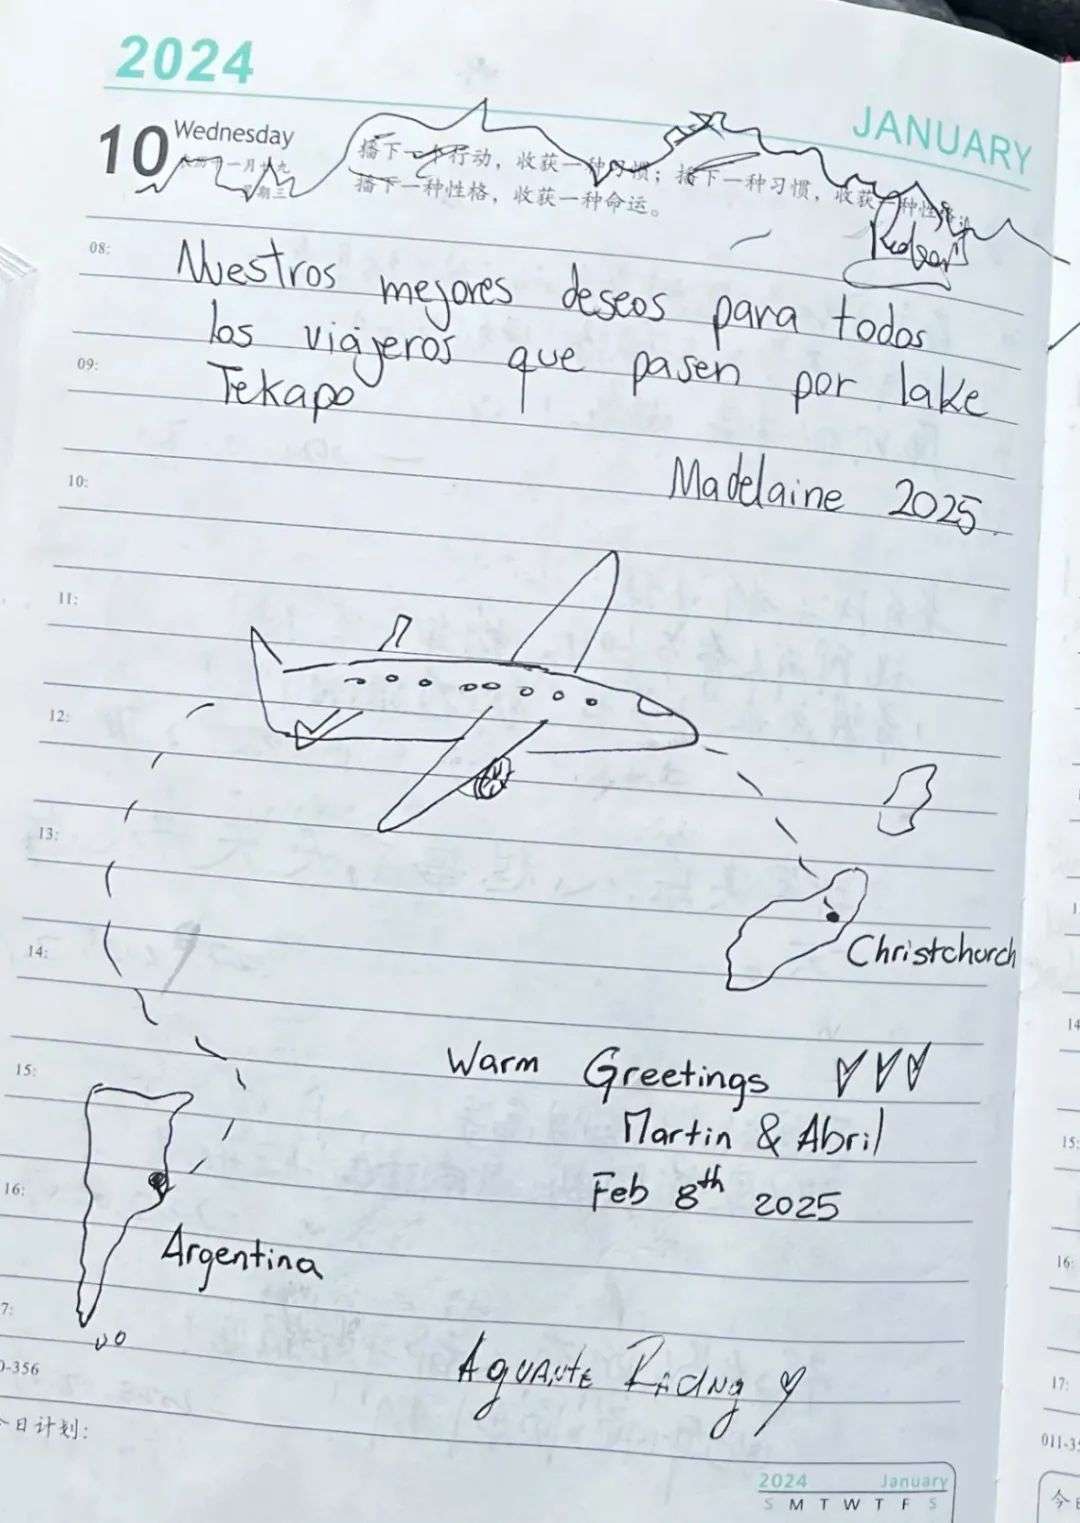 2024
JANUARY
10 Wednesday
播下一个行动，收获一种习惯；播下一种习惯，收获一种性
播下一种性格，收获一种命运。
08:
Nuestros mejores deseos para todos
los viajeros que pasen por lake
09:
Tekapo
10:
Madelaine 2025.
11:
12:
13:
14:
Christchurch
15:
Warm Greetings
Martin & Abril
16:
Feb 8th 2025
Argentina
7:
-356
Aguante Racing
今日计划:
2024 January
S M T W T F S
14
15:
16:
17:
011-35
今